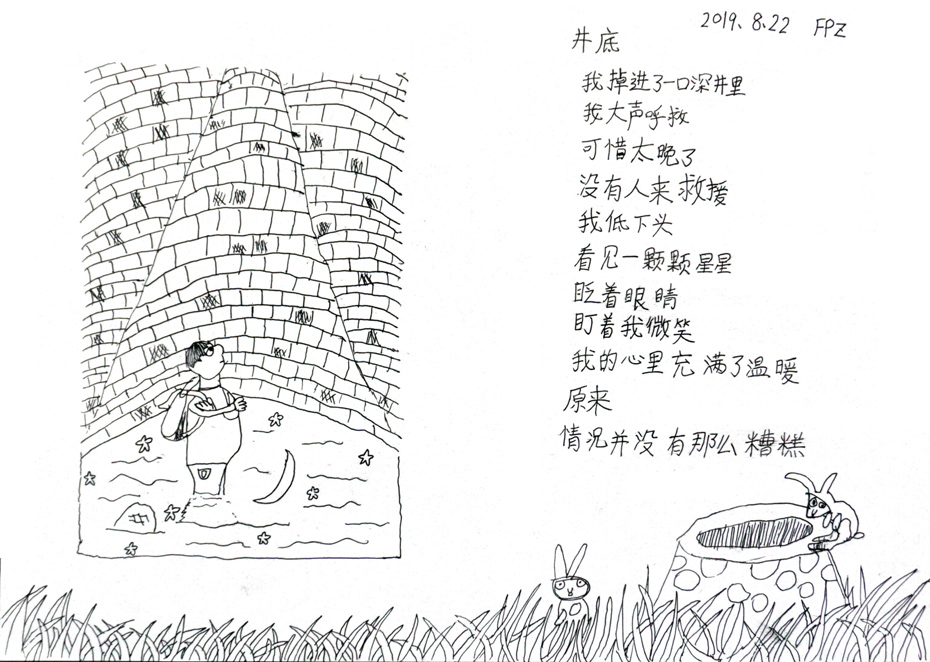 2019.8.22 FPZ
井底
我掉进了一口深井里
我大声呼救
可惜太晚了
没有人来救援
我低下头
看见一颗颗星星
眨着眼睛
盯着我微笑
我的心里充满了温暖
原来
情况并没有那么糟糕